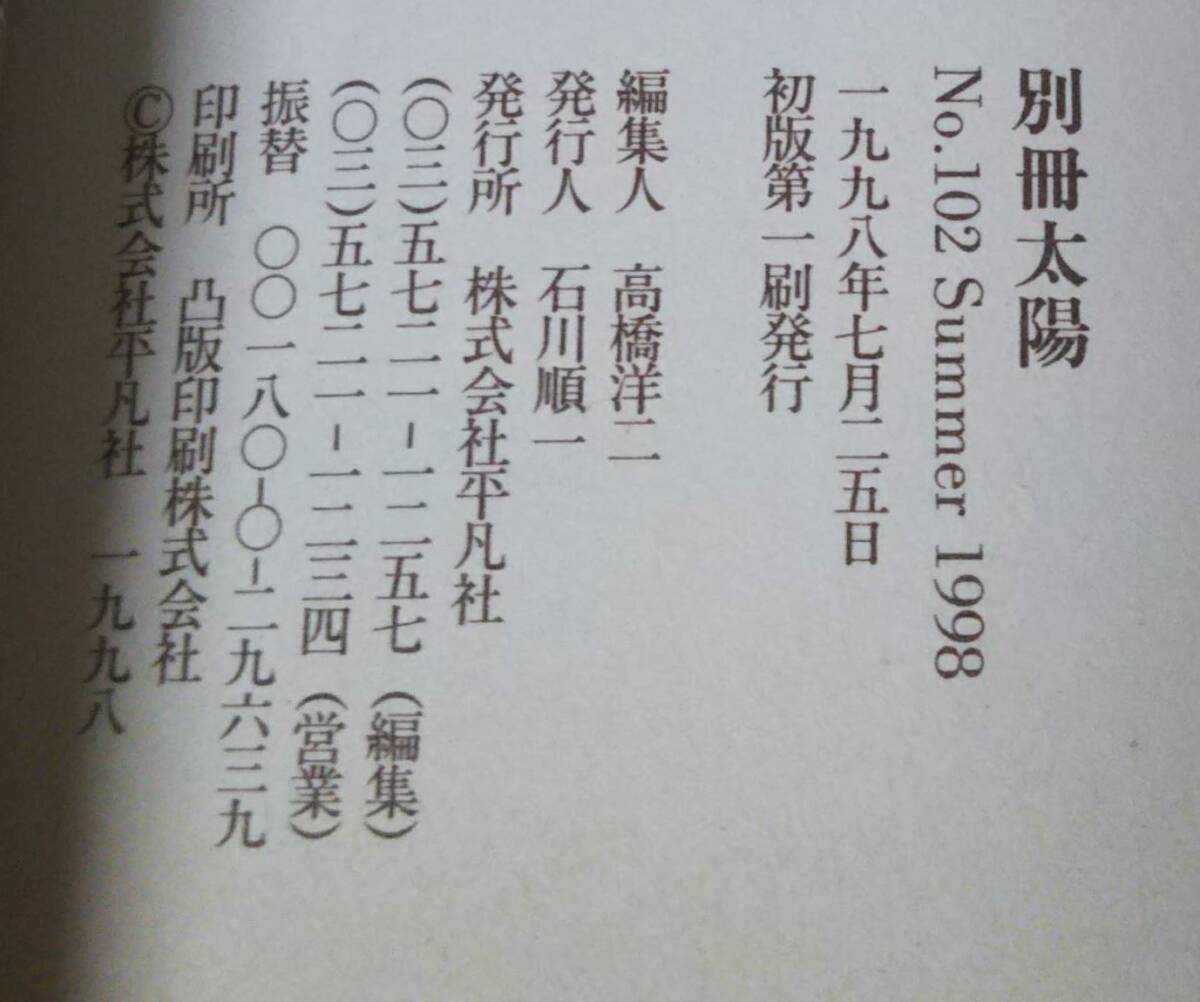 別冊太陽
No.102 Summer 1998
一九九八年七月二五日
初版第一刷発行
編集人 高橋洋二
発行人 石川順一
発行所 株式会社平凡社
(〇三)五七二一-一二五七(編集)
(〇三)五七二一-一二三四(営業)
振替 〇〇一八〇-〇-二九六三九
印刷所 凸版印刷株式会社
©株式会社平凡社 一九九八